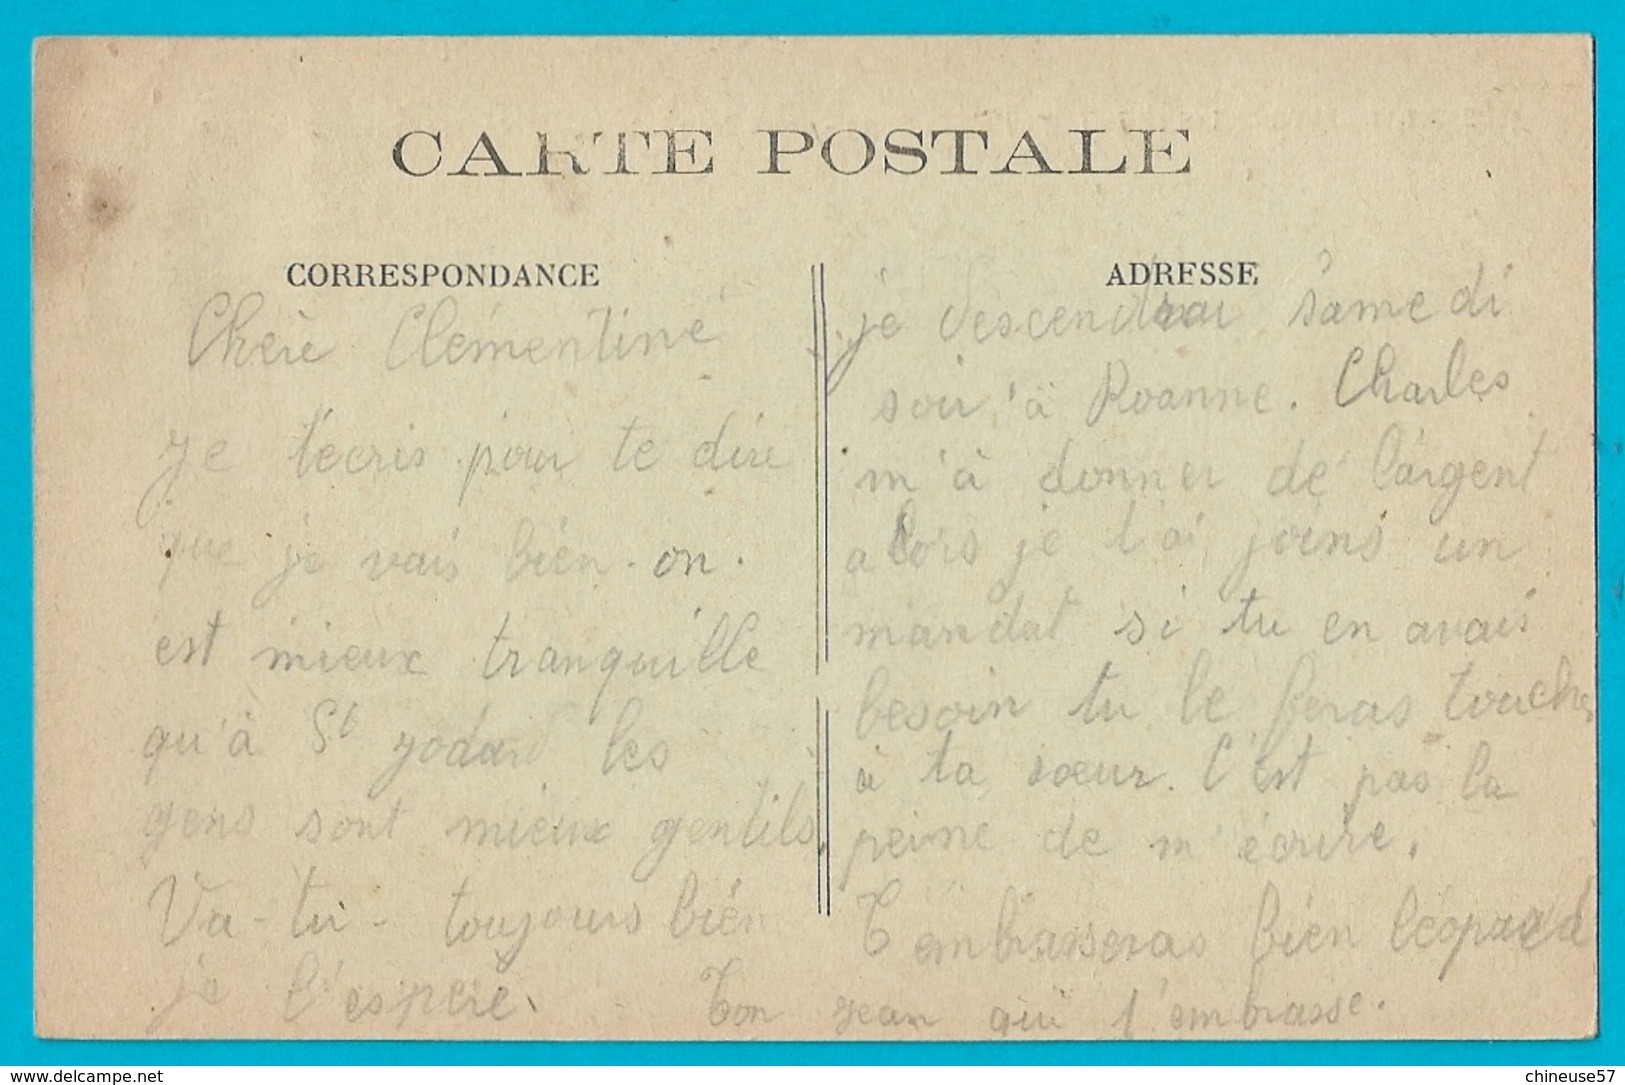 CARTE POSTALE
CORRESPONDANCE
Chère Clémentine
je t'ecris pour te dire
que je vais bien. on.
est mieux tranquille
qu'à St godard les
gens sont mieux gentils.
Va-tu-toujours bien
je l'espère.
ADRESSE
je descendrai samedi
soir à Roanne. Charles
m'à donner de l'argent
alors je t'ai joins un
mandat si tu en avais
besoin tu le feras toucher
à ta sœur. C'est pas la
peine de m'écrire.
T'embrasseras bien léopard
Ton jean qui t'embrasse.
www.delcampe.net
chineuse57